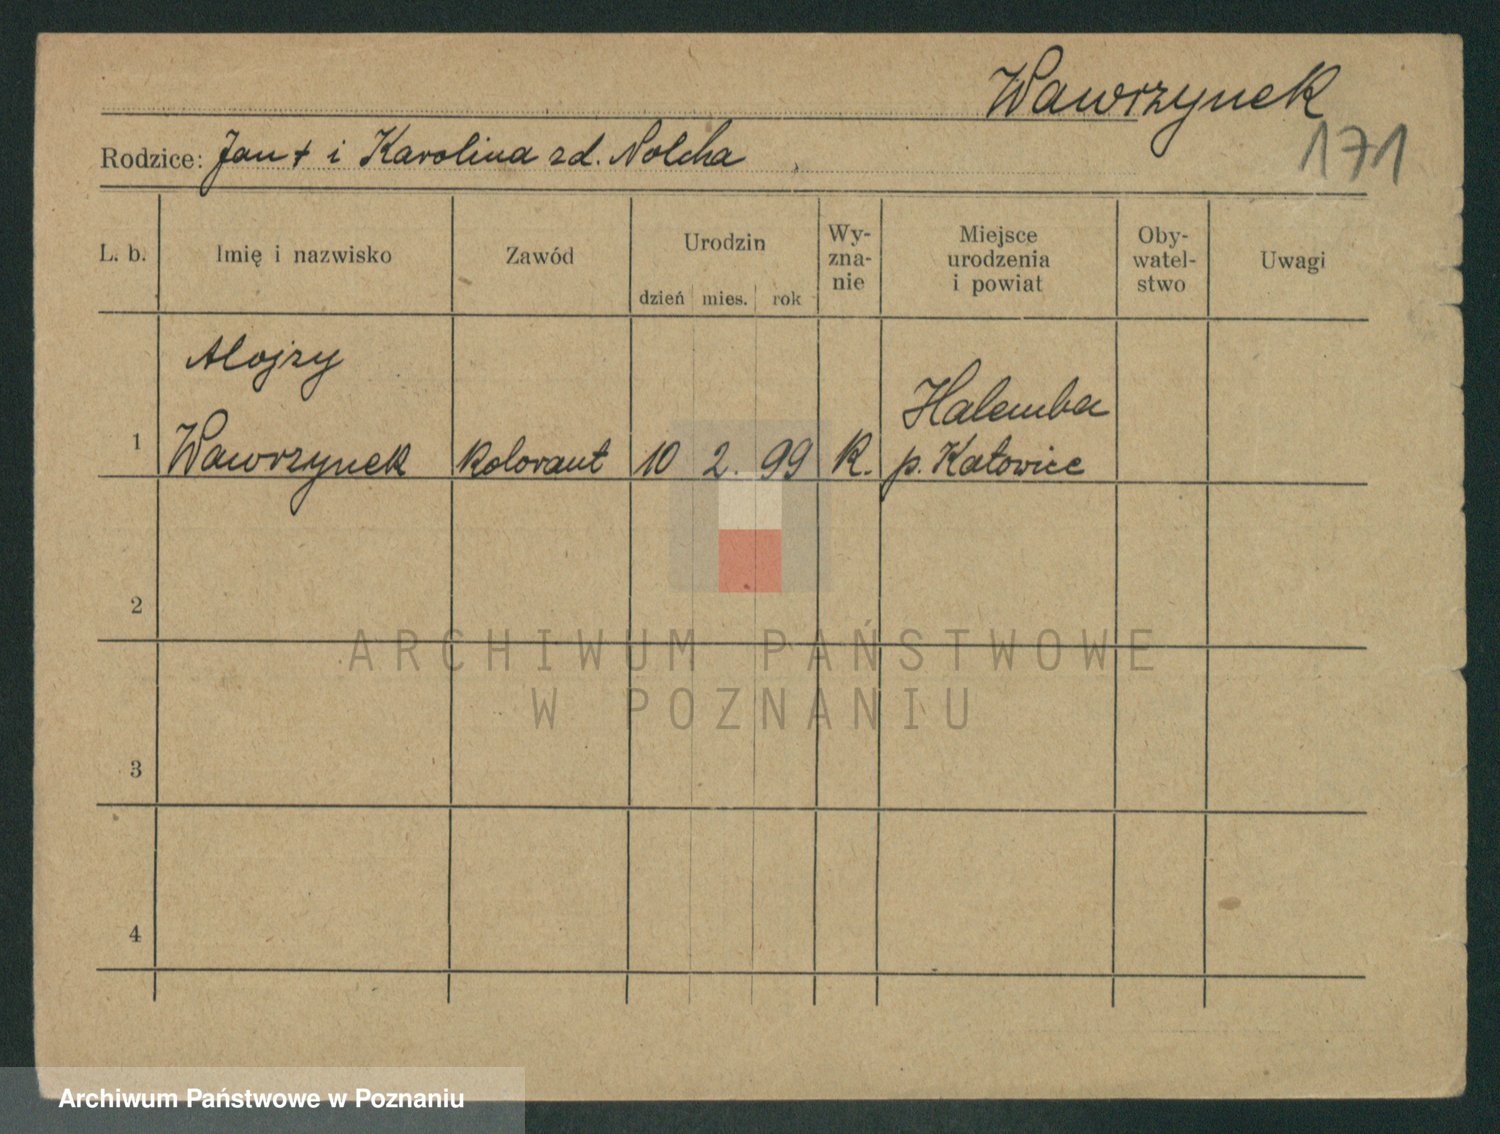 Wawrzynek
171
Rodzice: Jan + i Karolina zd. Nolcha
L. b.
Imię i nazwisko
Zawód
Urodzin
dzień mies. rok
Wy-
zna-
nie
Miejsce
urodzenia
i powiat
Oby-
watel-
stwo
Uwagi
Alojzy
Halemba
1 Wawrzynek Kolorant 10 2. 99 R. p. Katowice
2
ARCHIWUM PAŃSTWOWE
W POZNANIU
3
4
Archiwum Państwowe w Poznaniu